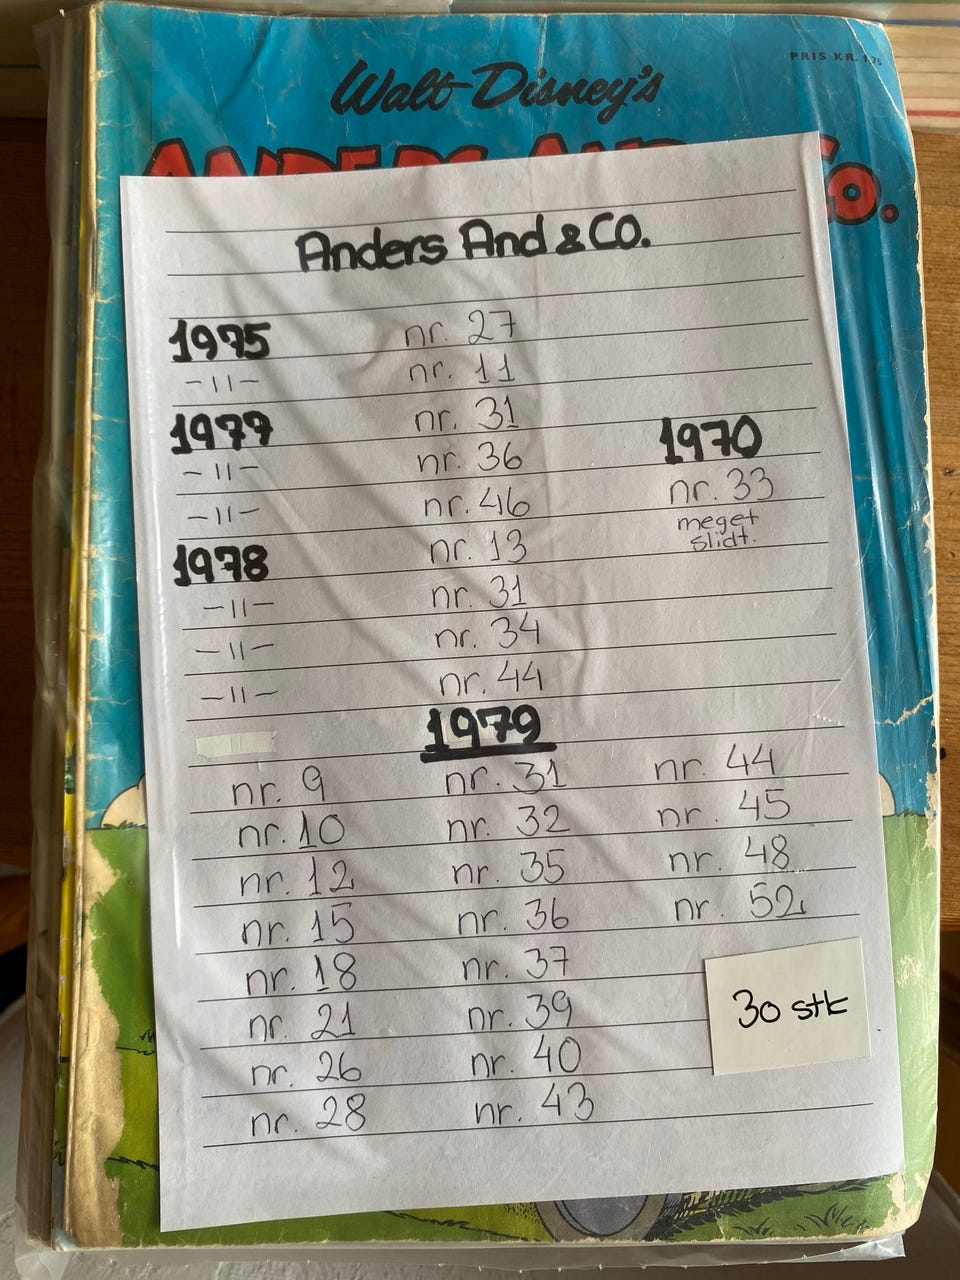 PRIS KR. 1.75
Walt Disney's
ANDERS AND & Co.
Anders And & CO.
1975 nr. 27
-11- nr. 11
1977 nr. 31
-11- nr. 36
-11- nr. 46
1970
nr. 33
meget
slidt.
1978 nr. 13
-11- nr. 31
-11- nr. 34
-11- nr. 44
1979
nr. 9 nr. 31 nr. 44
nr. 10 nr. 32 nr. 45
nr. 12 nr. 35 nr. 48
nr. 15 nr. 36 nr. 52
nr. 18 nr. 37
nr. 21 nr. 39
nr. 26 nr. 40
nr. 28 nr. 43
30 stk